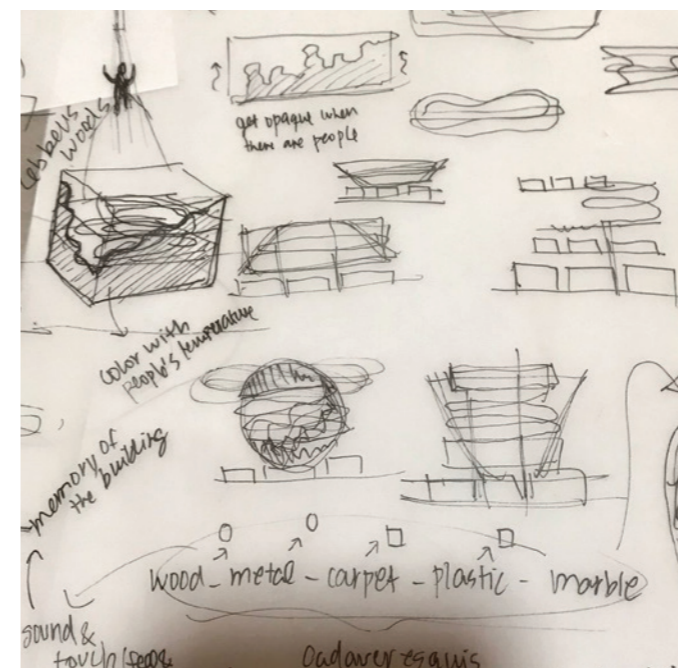 Lebbeus
Woods
get opaque when
there are people
color with
people's temperature
memory of
the building
wood - metal - carpet - plastic - marble
sound &
touch
Cadaver esquis